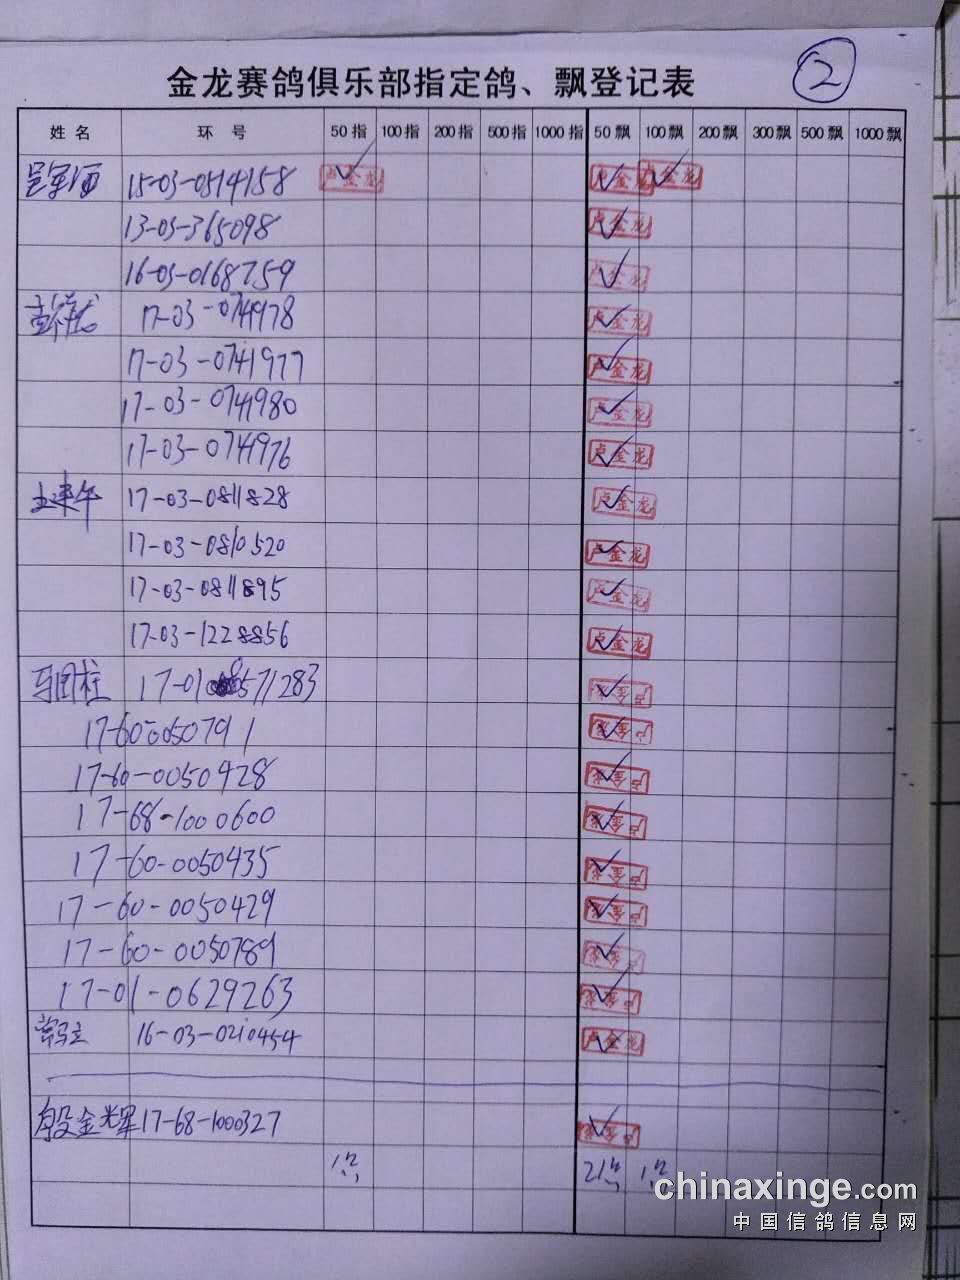 ②
金龙赛鸽俱乐部指定鸽、飘登记表
姓名 环号 50指 100指 200指 500指 1000指 50飘 100飘 200飘 300飘 500飘 1000飘
15-03-0514158 卢金龙 卢金龙 卢金龙
13-03-365098 卢金龙
16-03-0168759 卢金龙
17-03-0741978 卢金龙
17-03-0741977 卢金龙
17-03-0741980 卢金龙
17-03-0741976 卢金龙
17-03-0811828 卢金龙
17-03-0810520 卢金龙
17-03-0811895 卢金龙
17-03-1228856 卢金龙
17-01-0571283 卢金龙
17-60-0050791 卢金龙
17-60-0050428 卢金龙
17-68-1000600 卢金龙
17-60-0050435 卢金龙
17-60-0050429 卢金龙
17-60-0050789 卢金龙
17-01-0629263 卢金龙
16-03-0210454 卢金龙
殷金光军 17-68-1000327 卢金龙
1 21 1
chinaxinge.com
中国信鸽信息网